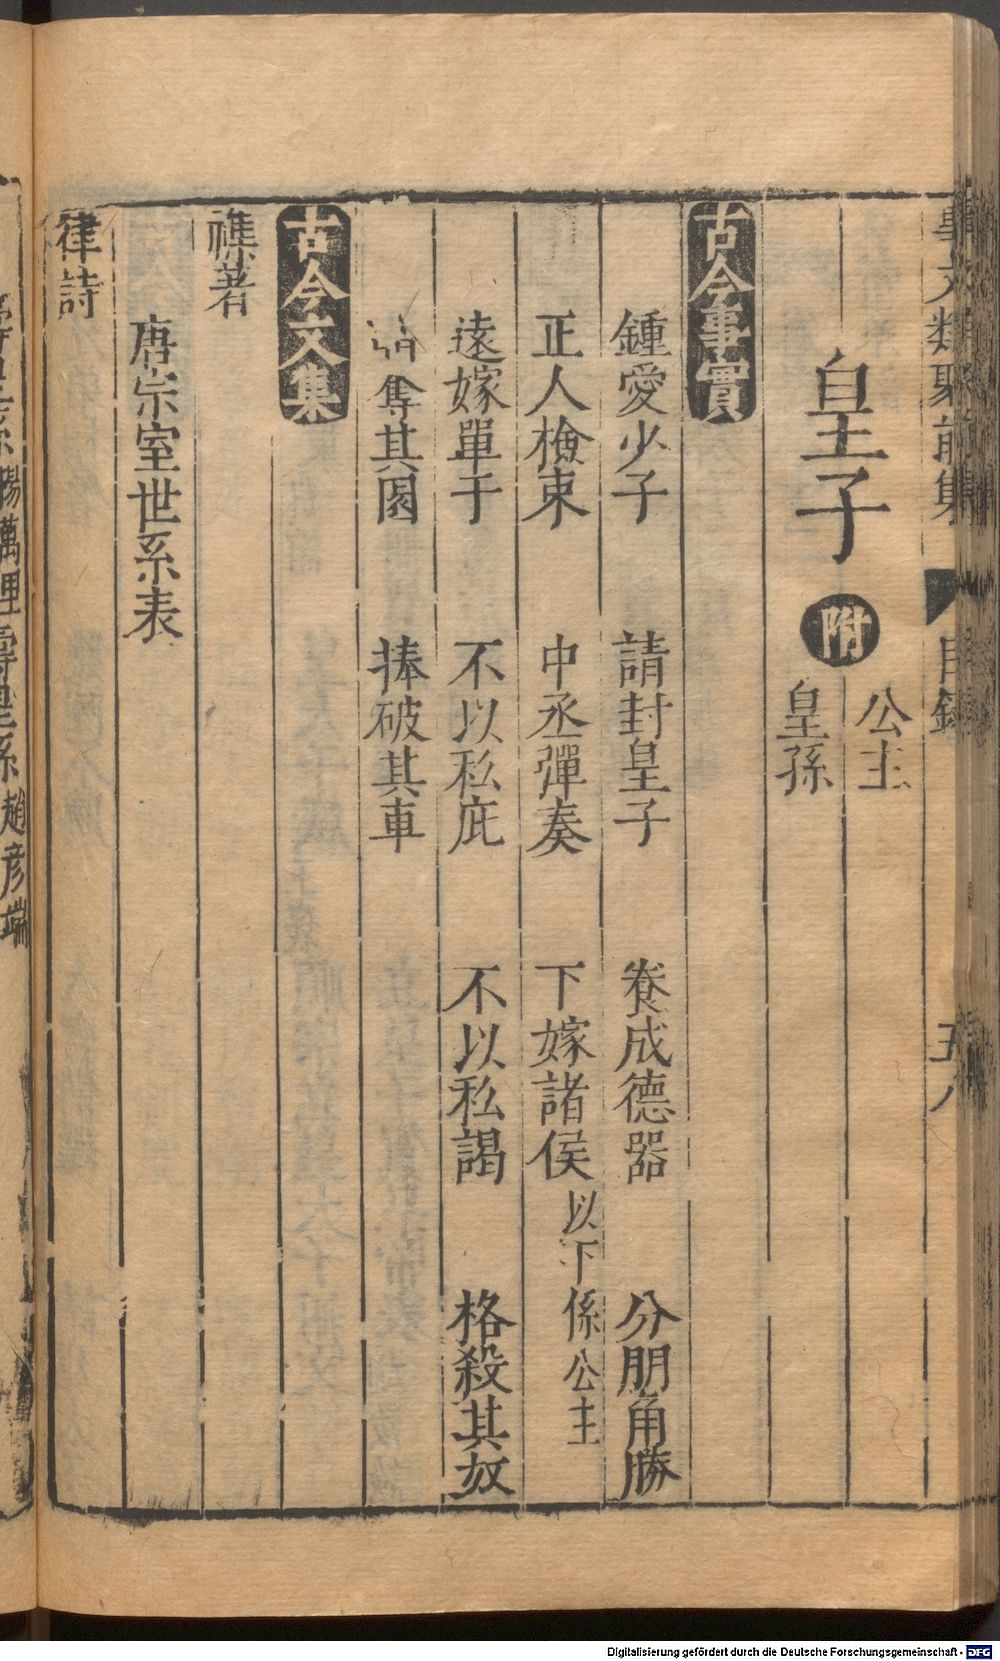 事文類聚前集 目録 五八
皇子 附 公主 皇孫
古今事實
鍾愛少子 請封皇子 養成德器 分朋角勝
正人檢束 中丞彈奏 下嫁諸侯 以下係公主
遠嫁單于 不以私庇 不以私謁 格殺其奴
奪其園 捧破其車
古今文集
襍著
唐宗室世系表
律詩
楊萬里 趙彦端
Digitalisierung gefördert durch die Deutsche Forschungsgemeinschaft - DFG